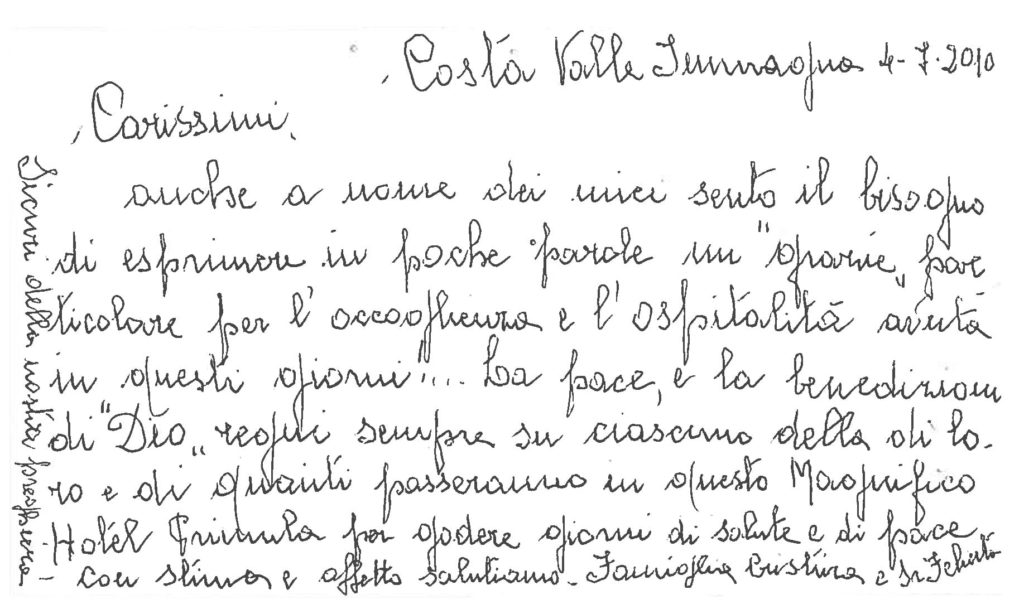 Costa Valle Immagna 4-7-2010
Carissimi,
anche a nome dei miei sento il bisogno
di esprimere in poche parole un "grazie„ par
ticolare per l'accoglienza e l'ospitalità avuta
in questi giorni"... La pace, e la benedizione
di "Dio„ regni sempre su ciascuno della di lo-
ro e di quanti passeranno in questo Magnifico
Hotél Primula per godere giorni di salute e di pace
- Con stima e affetto salutiamo - Famiglia Cristina e Sr.
Sicuri della nostra preghiera -